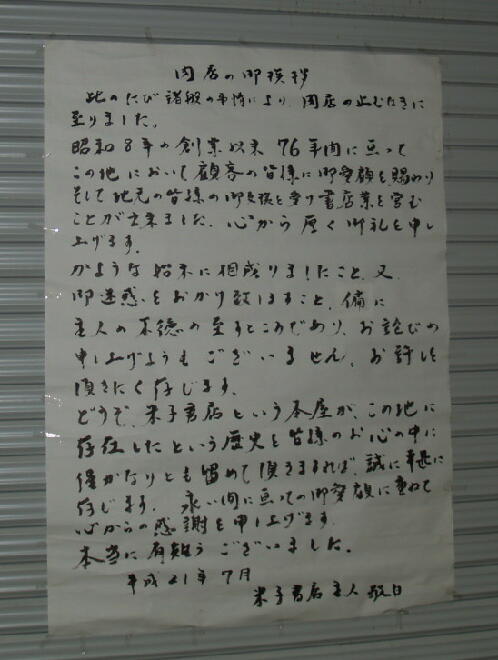 閉店の御挨拶
此のたび諸般の事情により、閉店の止むなきに
至りました。
昭和8年の創業以来76年間に亘って
この地において顧客の皆様に御愛顧を賜わり
そして地元の皆様の御支援を受け書店業を営む
ことが出来ました。心から厚く御礼を申し
上げます。
かような始末に相成りましたこと、又
御迷惑をおかけ致しますこと、偏に
主人の不徳の至すところであり、お詫びの
申し上げようもございません。お許しを
頂きたく存じます。
どうぞ、米子書店という本屋が、この地に
存在したという歴史を皆様のお心の中に
僅かなりとも留めて頂きますれば、誠に幸甚に
存じます。永い間に亘っての御愛顧に重ねて
心からの感謝を申し上げます。
本当に有難うございました。
平成21年7月
米子書店 主人 敬白